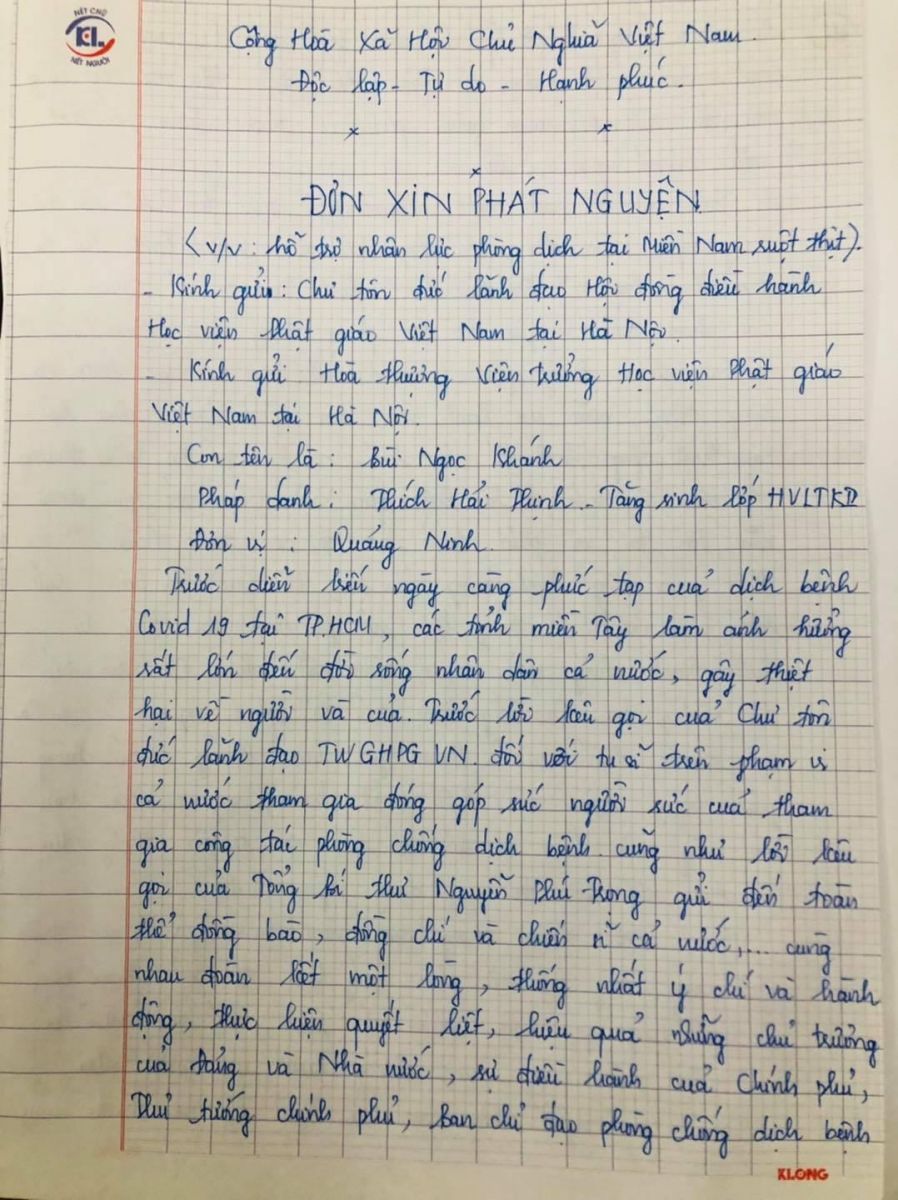 NÉT CHỮ
KL
NẾT NGƯỜI
Cộng Hoà Xã Hội Chủ Nghĩa Việt Nam
Độc lập - Tự do - Hạnh phúc.
ĐƠN XIN PHÁT NGUYỆN
(v/v: hỗ trợ nhân lực phòng dịch tại Miền Nam ruột thịt).
- Kính gửi: Chư tôn đức lãnh đạo Hội đồng điều hành
Học viện Phật giáo Việt Nam tại Hà Nội.
- Kính gửi Hoà thượng Viện trưởng Học viện Phật giáo
Việt Nam tại Hà Nội.
Con tên là: Bùi Ngọc Khánh
Pháp danh: Thích Hải Thịnh - Tăng sinh lớp HVLTKII
Đơn vị: Quảng Ninh.
Trước diễn biến ngày càng phức tạp của dịch bệnh
Covid 19 tại TP.HCM, các tỉnh miền Tây làm ảnh hưởng
rất lớn đến đời sống nhân dân cả nước, gây thiệt
hại về người và của. Trước lời kêu gọi của Chư tôn
đức lãnh đạo TWGHPGVN. đối với tu sĩ trên phạm vi
cả nước tham gia đóng góp sức người sức của tham
gia công tác phòng chống dịch bệnh cũng như lời kêu
gọi của Tổng bí thư Nguyễn Phú Trọng gửi đến toàn
thể đồng bào, đồng chí và chiến sĩ cả nước,... cùng
nhau đoàn kết một lòng, thống nhất ý chí và hành
động, thực hiện quyết liệt, hiệu quả những chủ trương
của Đảng và Nhà nước, sự điều hành của Chính phủ,
Thủ tướng chính phủ, Ban chỉ đạo phòng chống dịch bệnh
KLONG